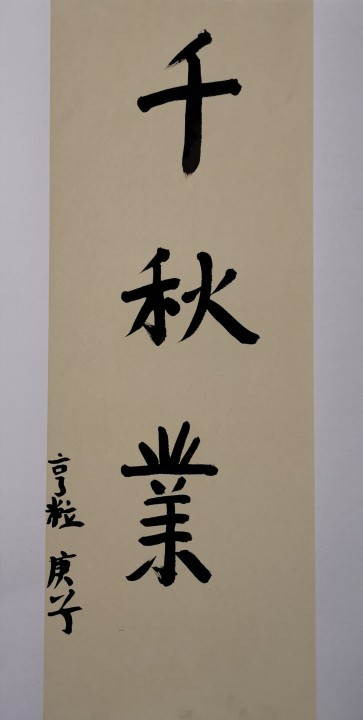 千秋業
亨粒 庚子